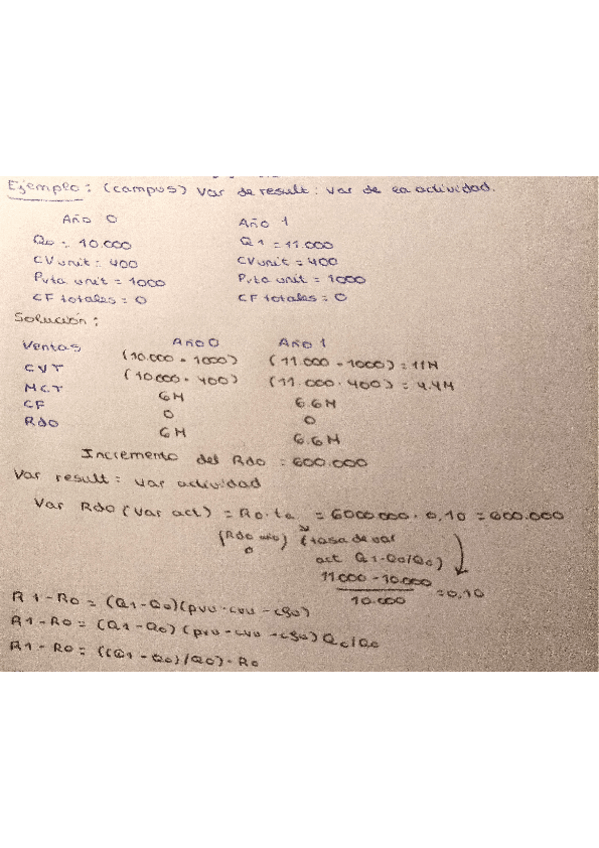 Ejemplo: (campus) Var de result: var de la actividad.
Año 0 Año 1
Q0 = 10.000 Q1 = 11.000
CV unit = 400 CV unit = 400
Pvta unit = 1000 Pvta unit = 1000
CF totales = 0 CF totales = 0
Solución:
Año 0 Año 1
Ventas (10.000 · 1000) (11.000 · 1000) = 11M
CVT (10.000 · 400) (11.000 · 400) = 4.4M
MCT 6M 6.6M
CF 0 0
Rdo 6M 6.6M
Incremento del Rdo = 600.000
Var result = var actividad
Var Rdo (Var act) = R0 · ta = 6000.000 · 0,10 = 600.000
(Rdo año 0) (tasa de var
act Q1-Q0/Q0)
11.000 - 10.000 / 10.000 = 0,10
R1 - R0 = (Q1 - Q0) (pvu - cvu - cfu)
R1 - R0 = (Q1 - Q0) (pvu - cvu - cfu) Q0/Q0
R1 - R0 = ((Q1 - Q0)/Q0) · R0